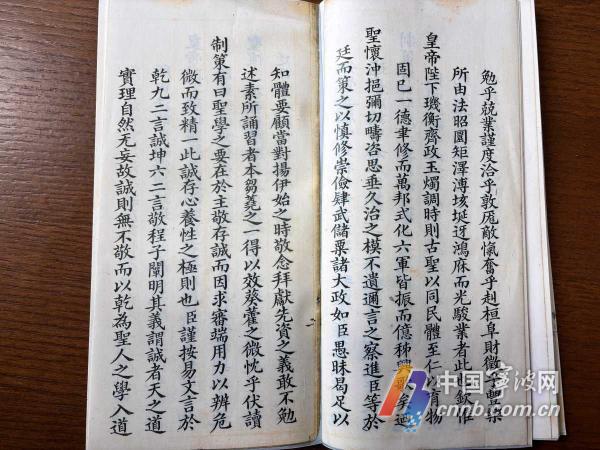 勉乎兢業謹度洽乎敦厖敵愾奮乎赳桓阜財徵
所由法昭圜矩澤溥垓埏迓鴻庥而光駿業者此也欽惟
皇帝陛下璣衡齊政玉燭調時則古聖以同民體至仁
固已一德聿修而萬邦式化六軍皆振而億秭興
聖懷沖挹彌切疇咨思垂久治之模不遺邇言之察進臣等於
廷而策之以慎修崇儉肄武儲粟諸大政如臣愚昧曷足以
知體要顧當對揚伊始之時敬念拜獻先資之義敢不勉
述素所誦習者本芻蕘之一得以效葵藿之微忱乎伏讀
制策有曰聖學之要在於主敬存誠而因求審端用力以辨危
微而致精一此誠存心養性之極則也臣謹按易文言於
乾九二言誠坤六二言敬程子闡明其義謂誠者天之道
實理自然无妄故誠則無不敬而以乾為聖人之學入道
中国宁波网
WWW.CNNB.COM.CN